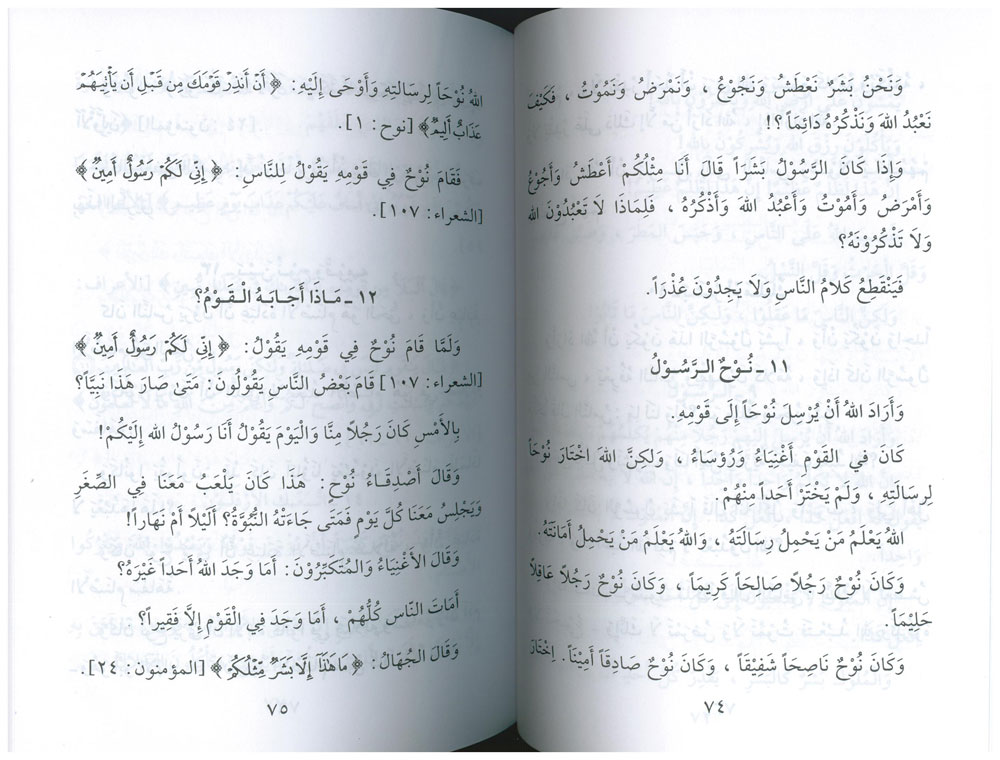 وَنَحْنُ بَشَرٌ نَعْطَشُ وَنَجُوْعُ ، وَنَمْرَضُ وَنَمُوْتُ ، فَكَيْفَ
نَعْبُدُ اللهَ وَنَذْكُرُهُ دَائِمَاً ؟!
وَإِذَا كَانَ الرَّسُوْلُ بَشَرَاً قَالَ أَنَا مِثْلُكُمْ أَعْطَشُ وَأَجُوْعُ
وَأَمْرَضُ وَأَمُوْتُ وَأَعْبُدُ اللهَ وَأَذْكُرُهُ ، فَلِمَاذَا لَا تَعْبُدُوْنَ اللهَ
وَلَا تَذْكُرُوْنَهُ؟
فَيَنْقَطِعُ كَلَامُ النَّاسِ وَلَا يَجِدُوْنَ عُذْرَاً.
١١ ـ نُـوْحٌ الـرَّسُـوْلُ
وَأَرَادَ اللهُ أَنْ يُرْسِلَ نُوْحَاً إِلَى قَوْمِهِ.
كَانَ في القَوْمِ أَغْنِيَاءُ وَرُؤَسَاءُ ، وَلكِنَّ اللهَ اخْتَارَ نُوْحَاً
لِرِسَالَتِهِ ، وَلَمْ يَخْتَرْ أَحَداً مِنْهُمْ.
اللهُ يَعْلَمُ مَنْ يَحْمِلُ رِسَالَتَهُ ، وَاللهُ يَعْلَمُ مَنْ يَحْمِلُ أَمَانَتَهُ.
وَكَانَ نُوْحٌ رَجُلًا صَالِحَاً كَرِيمَاً ، وَكَانَ نُوْحٌ رَجُلًا عَاقِلًا
حَلِيْمَاً.
وَكَانَ نُوْحٌ نَاصِحَاً شَفِيْقَاً ، وَكَانَ نُوْحٌ صَادِقَاً أَمِيْنَاً. اِخْتَارَ
٧٤
اللهُ نُوْحَاً لِرِسَالتِهِ وَأَوْحَى إِلَيْهِ: ﴿ أَنْ أَنذِرْ قَوْمَكَ مِن قَبْلِ أَن يَأْنِيَهُمْ
عَذَابٌ أَلِيمٌ﴾ [نوح: ١].
فَقَامَ نُوْحٌ فِي قَوْمِهِ يَقُوْلُ للنَّاسِ: ﴿ إِنِّي لَكُمْ رَسُولٌ أَمِينٌ ﴾
[الشعراء: ١٠٧].
١٢ ـ مَـاذَا أَجَابَـهُ الْـقَـوْمُ؟
وَلَمَّا قَامَ نُوْحٌ فِي قَوْمِهِ يَقُوْلُ: ﴿ إِنِّي لَكُمْ رَسُولٌ أَمِينٌ ﴾
[الشعراء: ١٠٧] قَامَ بَعْضُ النَّاسِ يَقُوْلُونَ: مَتَىٰ صَارَ هَذَا نَبِيَّاً؟
بِالأَمْسِ كَانَ رَجُلاً مِنَّا وَالْيَوْمَ يَقُوْلُ أَنَا رَسُوْلُ الله إِلَيْكُمْ!
وَقَالَ أَصْدِقَـاءُ نُوْحٍ: هَذَا كَانَ يَلْعَبُ مَعَنَا فِي الصِّغَرِ
وَيَجْلِسُ مَعَنَا كُلَّ يَوْمٍ فَمَتَى جَاءَتْهُ النُّبُوَّةُ؟ أَلَيْلاً أَمْ نَهَاراً!
وَقَالَ الأَغْنِيَاءُ وَالْمُتَكَبِّرُوْنَ: أَمَا وَجَدَ اللهُ أَحَداً غَيْرَهُ؟
أَمَاتَ النَّاس كُلُّهُمْ ، أَمَا وَجَدَ فِي الْقَوْمِ إِلَّا فَقِيراً؟
وَقَالَ الْجُهَّالُ: ﴿ مَا هَٰذَا إِلَّا بَشَرٌ مِّثْلُكُمْ ﴾ [المؤمنون: ٢٤].
٧٥